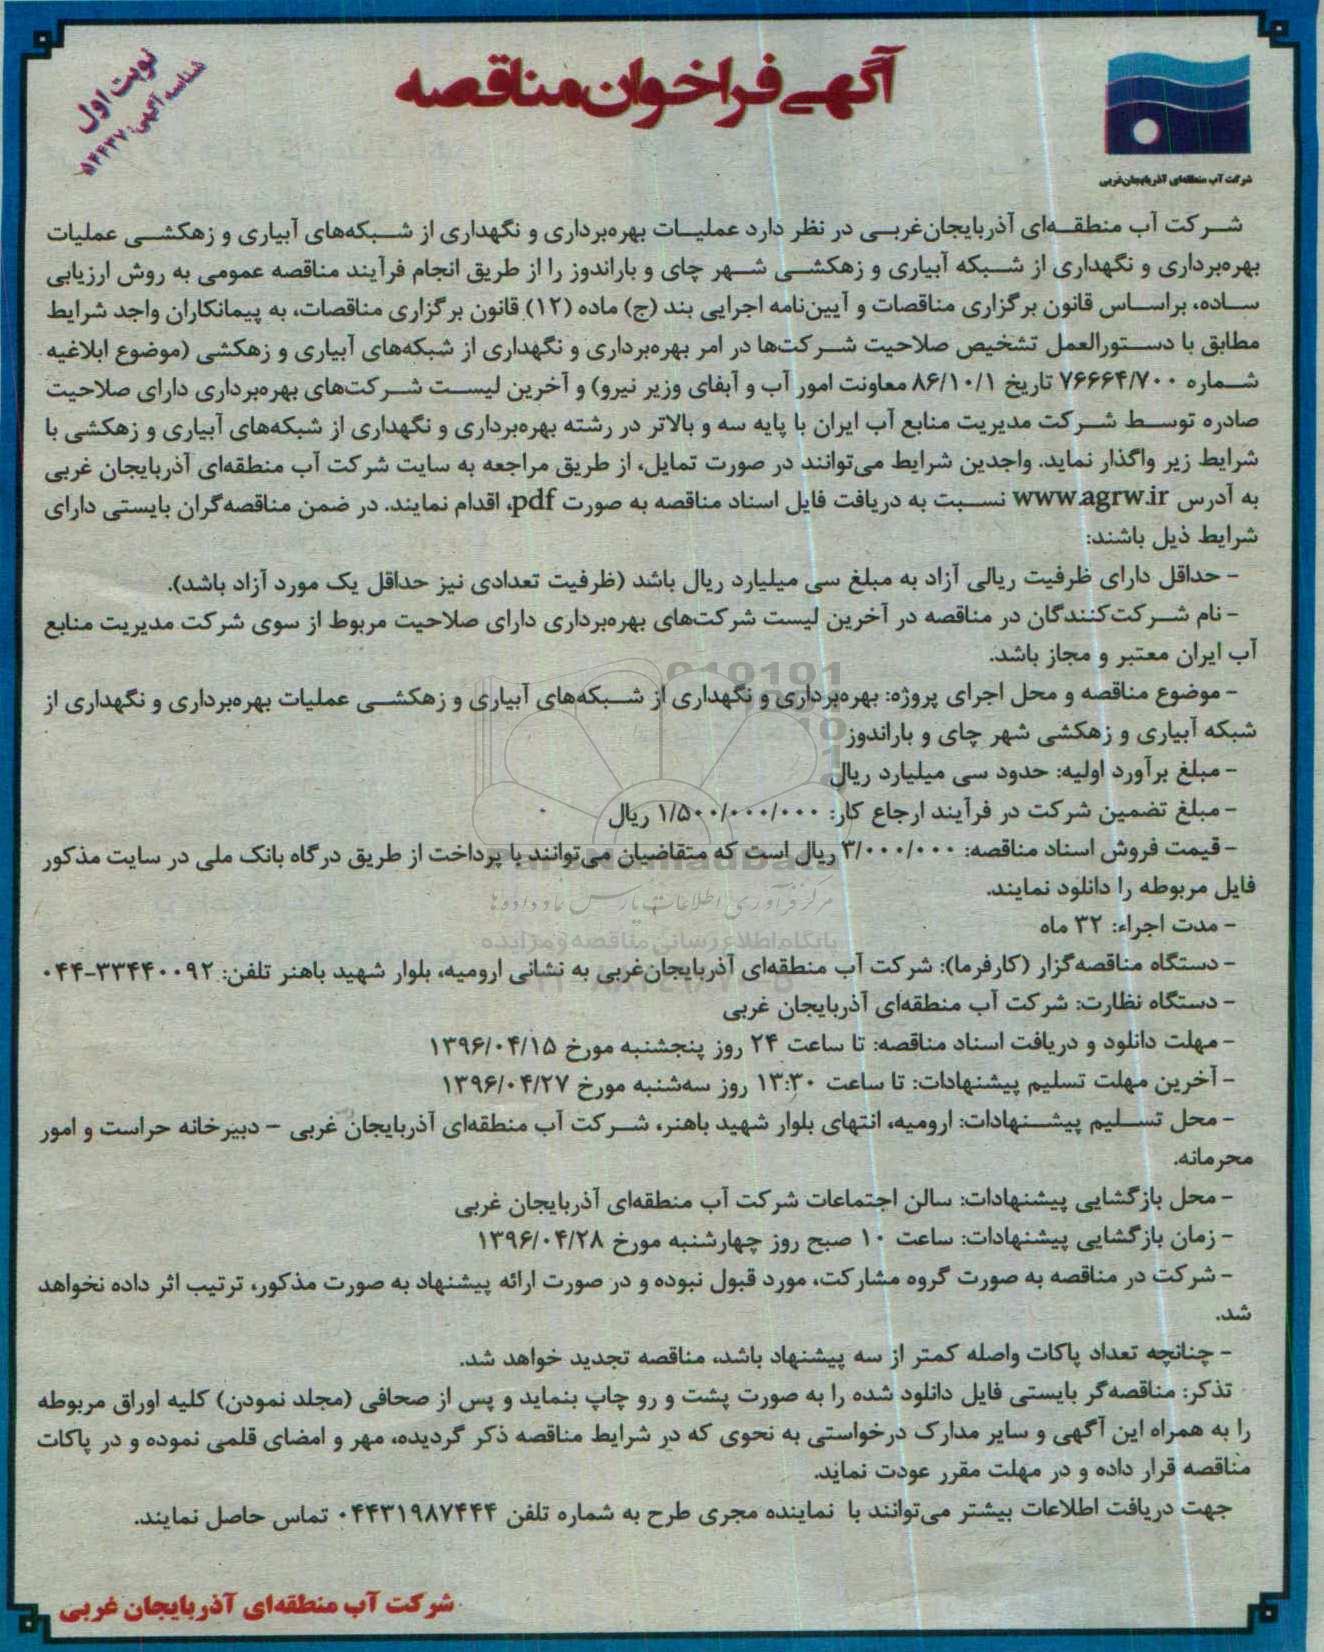 آگهی فراخوان مناقصه
نوبت اول
شناسه آگهی: ۵۴۴۳۷
شرکت آب منطقه‌ای آذربایجان‌غربی
شرکت آب منطقه‌ای آذربایجان‌غربی در نظر دارد عملیات بهره‌برداری و نگهداری از شبکه‌های آبیاری و زهکشی عملیات
بهره‌برداری و نگهداری از شبکه آبیاری و زهکشی شهر چای و باراندوز را از طریق انجام فرآیند مناقصه عمومی به روش ارزیابی
ساده، براساس قانون برگزاری مناقصات و آیین‌نامه اجرایی بند (ج) ماده (۱۲) قانون برگزاری مناقصات، به پیمانکاران واجد شرایط
مطابق با دستورالعمل تشخیص صلاحیت شرکت‌ها در امر بهره‌برداری و نگهداری از شبکه‌های آبیاری و زهکشی (موضوع ابلاغیه
شماره ۷۶۶۶۴/۷۰۰ تاریخ ۸۶/۱۰/۱ معاونت امور آب و آبفای وزیر نیرو) و آخرین لیست شرکت‌های بهره‌برداری دارای صلاحیت
صادره توسط شرکت مدیریت منابع آب ایران با پایه سه و بالاتر در رشته بهره‌برداری و نگهداری از شبکه‌های آبیاری و زهکشی با
شرایط زیر واگذار نماید. واجدین شرایط می‌توانند در صورت تمایل، از طریق مراجعه به سایت شرکت آب منطقه‌ای آذربایجان غربی
به آدرس www.agrw.ir نسبت به دریافت فایل اسناد مناقصه به صورت pdf، اقدام نمایند. در ضمن مناقصه‌گران بایستی دارای
شرایط ذیل باشند:
- حداقل دارای ظرفیت ریالی آزاد به مبلغ سی میلیارد ریال باشد (ظرفیت تعدادی نیز حداقل یک مورد آزاد باشد).
- نام شرکت‌کنندگان در مناقصه در آخرین لیست شرکت‌های بهره‌برداری دارای صلاحیت مربوط از سوی شرکت مدیریت منابع
آب ایران معتبر و مجاز باشد.
- موضوع مناقصه و محل اجرای پروژه: بهره‌برداری و نگهداری از شبکه‌های آبیاری و زهکشی عملیات بهره‌برداری و نگهداری از
شبکه آبیاری و زهکشی شهر چای و باراندوز
- مبلغ برآورد اولیه: حدود سی میلیارد ریال
- مبلغ تضمین شرکت در فرآیند ارجاع کار: ۱/۵۰۰/۰۰۰/۰۰۰ ریال
- قیمت فروش اسناد مناقصه: ۳/۰۰۰/۰۰۰ ریال است که متقاضیان می‌توانند با پرداخت از طریق درگاه بانک ملی در سایت مذکور
فایل مربوطه را دانلود نمایند.
- مدت اجراء: ۳۲ ماه
- دستگاه مناقصه‌گزار (کارفرما): شرکت آب منطقه‌ای آذربایجان‌غربی به نشانی ارومیه، بلوار شهید باهنر تلفن: ۳۳۴۴۰۰۹۲-۰۴۴
- دستگاه نظارت: شرکت آب منطقه‌ای آذربایجان غربی
- مهلت دانلود و دریافت اسناد مناقصه: تا ساعت ۲۴ روز پنجشنبه مورخ ۱۳۹۶/۰۴/۱۵
- آخرین مهلت تسلیم پیشنهادات: تا ساعت ۱۳:۳۰ روز سه‌شنبه مورخ ۱۳۹۶/۰۴/۲۷
- محل تسلیم پیشنهادات: ارومیه، انتهای بلوار شهید باهنر، شرکت آب منطقه‌ای آذربایجان غربی – دبیرخانه حراست و امور
محرمانه.
- محل بازگشایی پیشنهادات: سالن اجتماعات شرکت آب منطقه‌ای آذربایجان غربی
- زمان بازگشایی پیشنهادات: ساعت ۱۰ صبح روز چهارشنبه مورخ ۱۳۹۶/۰۴/۲۸
- شرکت در مناقصه به صورت گروه مشارکت، مورد قبول نبوده و در صورت ارائه پیشنهاد به صورت مذکور، ترتیب اثر داده نخواهد
شد.
- چنانچه تعداد پاکات واصله کمتر از سه پیشنهاد باشد، مناقصه تجدید خواهد شد.
تذکر: مناقصه‌گر بایستی فایل دانلود شده را به صورت پشت و رو چاپ بنماید و پس از صحافی (مجلد نمودن) کلیه اوراق مربوطه
را به همراه این آگهی و سایر مدارک درخواستی به نحوی که در شرایط مناقصه ذکر گردیده، مهر و امضای قلمی نموده و در پاکات
مناقصه قرار داده و در مهلت مقرر عودت نماید.
جهت دریافت اطلاعات بیشتر می‌توانند با نماینده مجری طرح به شماره تلفن ۰۴۴۳۱۹۸۷۴۴۴ تماس حاصل نمایند.
شرکت آب منطقه‌ای آذربایجان غربی